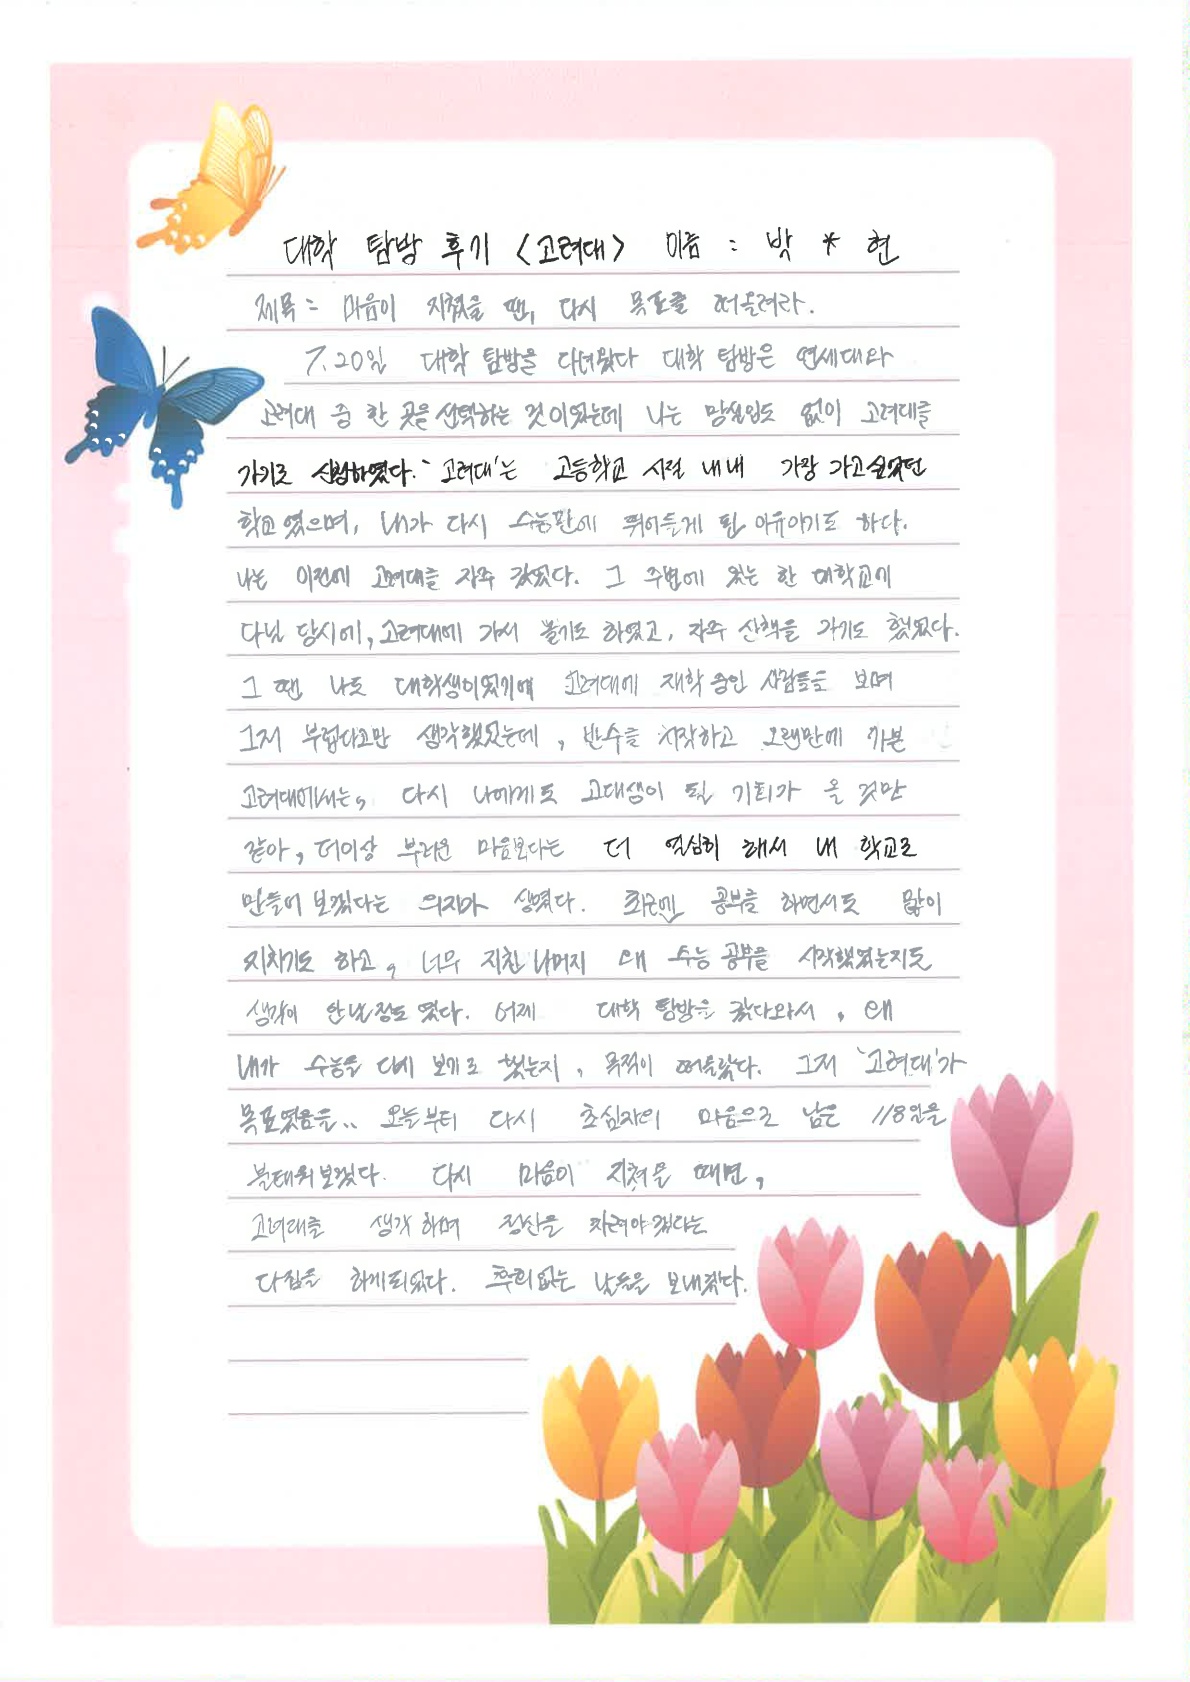 대학 탐방 후기 <고려대> 이름 : 박 * 현
제목 : 마음이 지쳤을 땐, 다시 목표를 떠올려라.
7.20일 대학 탐방을 다녀왔다 대학 탐방은 연세대와
고려대 중 한 곳을 선택하는 것이었는데 나는 망설임도 없이 고려대를
가기로 신청하였다. '고려대'는 고등학교 시절 내내 가장 가고싶었던
학교였으며, 내가 다시 수능판에 뛰어들게 된 이유이기도 하다.
나는 이전에 고려대를 자주 갔었다. 그 주변에 있는 한 대학교에
다닐 당시에, 고려대에 가서 놀기도 하였고, 자주 산책을 가기도 했었다.
그 땐 나도 대학생이었기에 고려대에 재학중인 사람들을 보며
그저 부럽다고만 생각했었는데, 반수를 시작하고 오랜만에 가본
고려대에서는, 다시 나에게도 고대생이 될 기회가 올 것만
같아, 더이상 부러운 마음보다는 더 열심히 해서 내 학교로
만들어 보겠다는 의지가 생겼다. 최근엔 공부를 하면서도 많이
지치기도 하고, 너무 지친 나머지 왜 수능 공부를 시작했었는지도
생각이 안날정도였다. 어제 대학 탐방을 갔다와서, 왜
내가 수능을 다시 보기로 했는지, 목적이 떠올랐다. 그저 '고려대'가
목표였음을.. 오늘부터 다시 초심자의 마음으로 남은 118일을
불태워보겠다. 다시 마음이 지쳤을 때면,
고려대를 생각하며 정신을 차려야겠다는
다짐을 하게되었다. 후회없는 날들을 보내겠다.